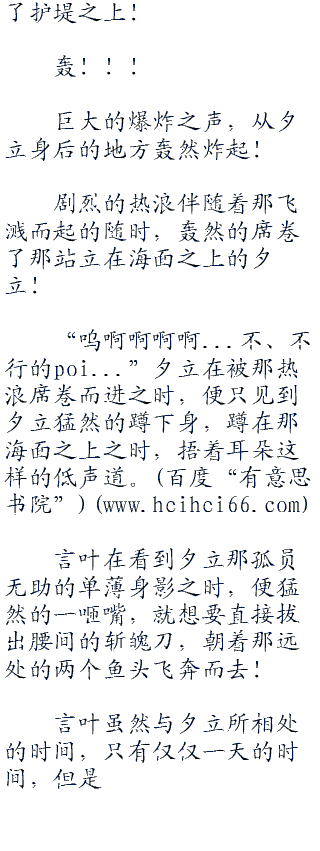 了护堤之上！
轰！！！
巨大的爆炸之声，从夕
立身后的地方轰然炸起！
剧烈的热浪伴随着那飞
溅而起的随时，轰然的席卷
了那站立在海面之上的夕
立！
“呜啊啊啊啊...不、不
行的poi...”夕立在被那热
浪席卷而进之时，便只见到
夕立猛然的蹲下身，蹲在那
海面之上之时，捂着耳朵这
样的低声道。(百度“有意思
书院”)(www.hcihci66.com)
言叶在看到夕立那孤员
无助的单薄身影之时，便猛
然的一咂嘴，就想要直接拔
出腰间的斩魄刀，朝着那远
处的两个鱼头飞奔而去！
言叶虽然与夕立所相处
的时间，只有仅仅一天的时
间，但是